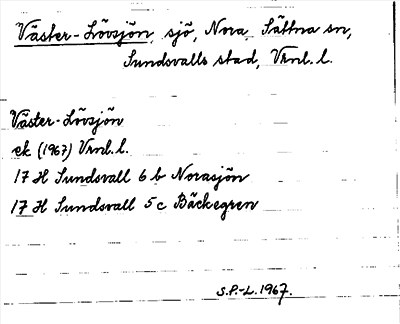 Väster-Lövsjön, sjö, Nora, Sättna sn,
Sundsvalls stad, Vrnl. l.
Väster-Lövsjön
ek (1967) Vrnl. l.
17 H Sundsvall 6 b Norasjön
17 H Sundsvall 5 c Bäckegren
S.P.-L. 1967.